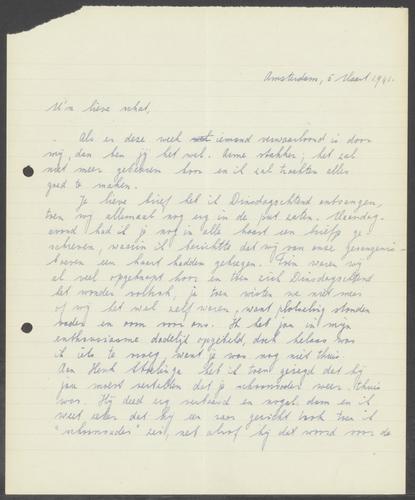 Amsterdam, 5 Maart 1941.
M'n lieve schat,
Als er deze week iemand verwaarloosd is door
mij, dan ben jij het wel. Arme stakker; het zal
niet meer gebeuren hoor en ik zal trachten alles
goed te maken.
Je lieve brief heb ik Dinsdagochtend ontvangen,
toen wij allemaal nog erg in de put zaten. Maandag-
avond had ik je nog in alle haast een briefje ge-
schreven, waarin ik berichtte dat wij van onze gevangenis-
boeven een kaart hadden gekregen. Toen waren wij
al veel opgeknapt hoor en toen zich Dinsdagochtend
het wonder voltrok, je toen wisten we niet meer
of wij het wel zelf waren, want plotseling stonden
vader en oom voor ons. Ik heb jou in mijn
enthousiasme dadelijk opgebeld, doch helaas was
ik iets te vroeg, want je was nog niet thuis.
Aan Henk heb ik toen gezegd dat hij
jou moest vertellen dat je schoonvader weer thuis
was. Hij deed erg verbaasd en nogal dom en ik
weet zeker dat hij een raar gezicht trok toen ik
"schoonvader" zei, net alsof hij dat woord voor de